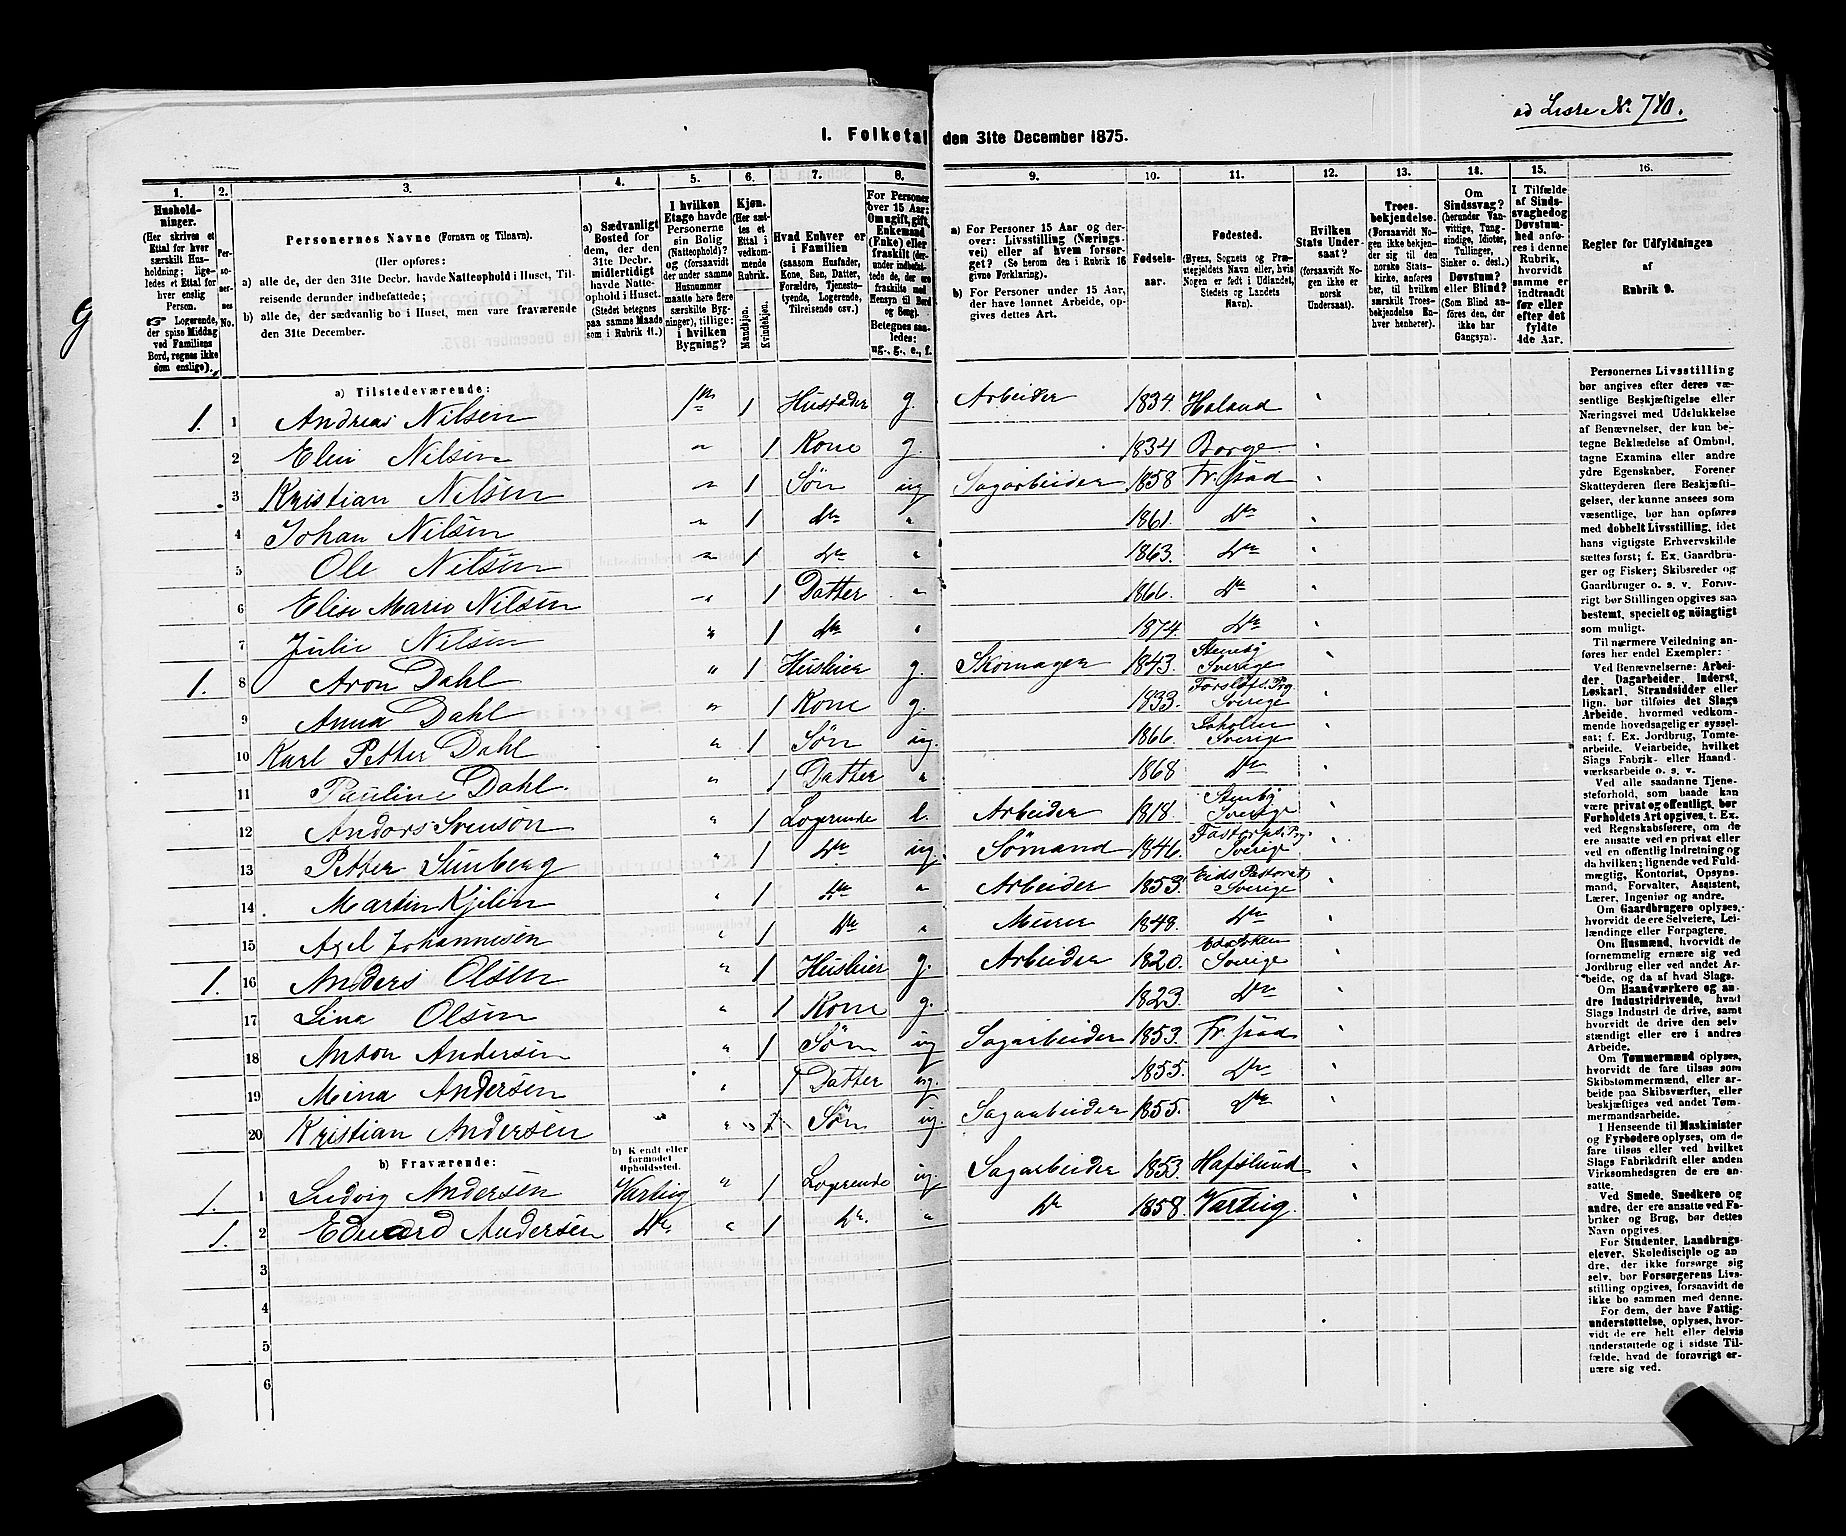 ad Liste № 740.
I. Folketal den 31te December 1875.
1. 2. 3. 4. 5. 6. 7. 8. 9. 10. 11. 12. 13. 14. 15. 16.
Hushold-
ninger.
(Her skrives et
Ettal for hver
særskilt Hus-
holdning; lige-
ledes et Ettal for
hver enslig
Person.
☞ Logerende,
der spise Middag
ved Familiens
Bord, regnes ikke
som enslige).
Per-
so-
ner-
nes
No.
Personernes Navne (Fornavn og Tilnavn).
(Her opføres:
a) alle de, der den 31te Decbr. havde Natteophold i Huset, Til-
reisende derunder indbefattede;
b) alle de, der sædvanlig bo i Huset, men vare fraværende
den 31te December.
a) Sædvanligt
Bosted for
dem, der den
31te Decbr.
midlertidigt
havde Natte-
ophold i Huset.
(Stedet betegnes
paa samme Maade
som i Rubrik 11.)
I hvilken
Etage havde
Personerne
sin Bolig
(Natteophold)?
og (forsaavidt
der under samme
Husnummer
maatte høre flere
særskilte Byg-
ninger), tillige:
i hvilken
Bygning?
Kjøn.
(Her sæt-
tes et
Ettal i
vedkom-
mende
Rubrik.
Mandkjøn.
Kvindekjøn.
Hvad Enhver er
i Familien
(saasom Husfader,
Kone, Søn, Datter,
Forældre, Tjeneste-
tyende, Logerende,
Tilreisende osv.)
For Personer
over 15 Aar:
Om ugift, gift,
Enkemand
(Enke) eller
fraskilt (der-
under indbefat-
tede de, der ere
fraskilte med
Hensyn til Bord
og Seng).
Betegnes saa-
ledes:
ug., g., e., f.
a) For Personer 15 Aar og der-
over: Livsstilling (Nærings-
vei) eller af hvem forsør-
get? (Se herom den i Rubrik 16
givne Forklaring).
b) For Personer under 15 Aar,
der have lønnet Arbeide, op-
gives dettes Art.
Fødsels-
aar.
Fødested.
(Byens, Sognets og Præ-
stegjeldets Navn eller, hvis
Nogen er født i Udlandet,
Stedets og Landets
Navn).
Hvilken
Stats Under-
saat?
(forsaavidt No-
gen ikke er
norsk
Undersaat).
Troes-
bekjendelse.
(Forsaavidt No-
gen ikke bekjen-
der sig til den
norske Stats-
kirke, anføres
her, til hvilken
særskilt Troes-
bekjendelse En-
hver henhører).
Om
Sindssvag?
(herunder Van-
vittige, Tung-
sindige, Idioter,
Tullinger,
Sinker o. desl.)
Døvstum?
eller Blind?
(Som Blind an-
føres den, der
ikke har
Gangsyn).
I Tilfælde
af Sinds-
svaghed og
Døvstum-
hed anfø-
res i denne
Rubrik,
hvorvidt
samme er
indtraadt
før eller
efter det
fyldte
4de Aar.
Regler for Udfyldningen
af
Rubrik 9.
a) Tilstedeværende:
1. 1 Andreas Nilsen 1 Husfader g. Arbeider 1834. Holand
2 Elin Nilsen 1 Kone g. 1834 Borge
3 Kristian Nilsen 1 Søn ug Sagarbeider 1858 Fr. stad
4 Johan Nilsen 1 do 1861. do
5 Ole Nilsen 1 do 1863. do
6 Elise Marie Nilsen 1 Datter 1866. do
7 Julie Nilsen 1 do 1874. do
1. 8 Aron Dahl " 1 Husleier g. Skomager 1843. Stenby Sverige
9 Anna Dahl 1 Kone g. 1833. Sverige
10 Karl Petter Dahl 1 Søn ug. 1866. Sverige
11 Pauline Dahl. 1 Datter 1868 do
12 Andors Svenson 1 Logerende Arbeider 1818. Stenby Sverige
13 Petter 1 do ug. Sømand 1846. Sverige
14 Martin Kjelin 1 do Arbeider 1853. Eids Pastorat Sverige
15 Axel Johannesen 1 do Murer 1848. do
1. 16 Anders Olsen 1 Husleier g. Arbeider 1820. Sverige
17 Lina Olsen 1 Kone g. 1823. do
18 Anton Andersen 1 Søn ug Sagarbeider 1853. Fr. stad
19 Mina Andersen 1 Datter ug. 1855. do
20 Kristian Andersen 1 Søn ug. Sagarbeider 1855. do
b) Fraværende:
b) Kjendt eller
formodet
Opholdssted.
1. 1 Ludvig Andersen Varteig 1 Logerende ug. Sagarbeider 1853. Hafslund
1. 2 Eduard Andersen do 1 do. do 1858. Varteig.
3
4
5
6
Personernes Livsstilling
bør angives efter deres væ-
sentlige Beskjæftigelse eller
Næringsvei med Udelukkelse
af Benævnelser, der kun be-
tegne Beklædelse af Ombud,
tagne Examina eller andre
ydre Egenskaber. Forener
Skatteyderen flere Beskjæfti-
gelser, der kunne ansees som
væsentlige, bør han opføres
med dobbelt Livsstilling, idet
hans vigtigste Erhvervskilde
sættes først; f. Ex. Gaardbru-
ger og Fisker; Skibsreder og
Gaardbruger o. s. v. Forøv-
rigt bør Stillingen opgives saa
bestemt, specielt og nöiagtigt
som muligt.
Til nærmere Veiledning an-
føres her endel Exempler:
Ved Benævnelserne: Arbei-
der, Dagarbeider, Inderst,
Løskarl, Strandsidder eller
lign. bør tilføies det Slags
Arbeide, hvormed vedkom-
mende hovedsagelig er syssel-
sat; f. Ex. Jordbrug, Tomte-
arbeide, Veiarbeide, hvilket
Slags Fabrik- eller Haand-
værksarbeide o. s. v.
Ved alle saadanne Tjene-
steforhold, som baade kan
være privat og offentligt, bør
Forholdets Art opgives, t. Ex.
ved Regnskabsførere, om de
ere ansatte ved en privat eller
ved en offentlig Indretning og
da hvilken; lignende ved Fuld-
mægtig, Kontorist, Opsyns-
mand, Forvalter, Assistent,
Lærer, Ingeniør og andre.
Om Gaardbrugere oplyses,
hvorvidt de ere Selveiere, Lei-
lændinge eller Forpagtere.
Om Husmænd, hvorvidt de
fornemmelig ernære sig ved
Jordbrug eller ved andet Ar-
beide, og da af hvad Slags.
Om Haandværkere og an-
dre Industridrivende, hvad
Slags Industri de drive, samt
hvorvidt de drive den selv-
stændigt eller ere i andres
Arbeide.
Om Tømmermænd oplyses,
hvorvidt de fare tilsøs som
Skibstømmermænd, eller ar-
beide paa Skibsværfter, eller
beskjæftiges ved andet Tøm-
mermandsarbeide.
I Henseende til Maskinister
og Fyrbødere oplyses, om de
fare tilsøs eller ved hvilket
Slags Fabrikdrift eller anden
Virksomhedsgren de ere an-
satte.
Ved Smede, Snedkere og
andre, der ere ansatte ved Fa-
briker og Brug, bør dettes
Navn opgives.
For Studenter, Landbrugs-
elever, Skoledisciple og an-
dre, der ikke forsørge sig
selv, bør Forsørgerens Livs-
stilling opgives, forsaavidt de
ikke bo sammen med denne.
For dem, der have Fattig-
understøttelse, oplyses, hvor-
vidt de ere helt eller delvis
understøttede og i sidste Til-
fælde, hvad de forøvrigt er-
nære sig ved.